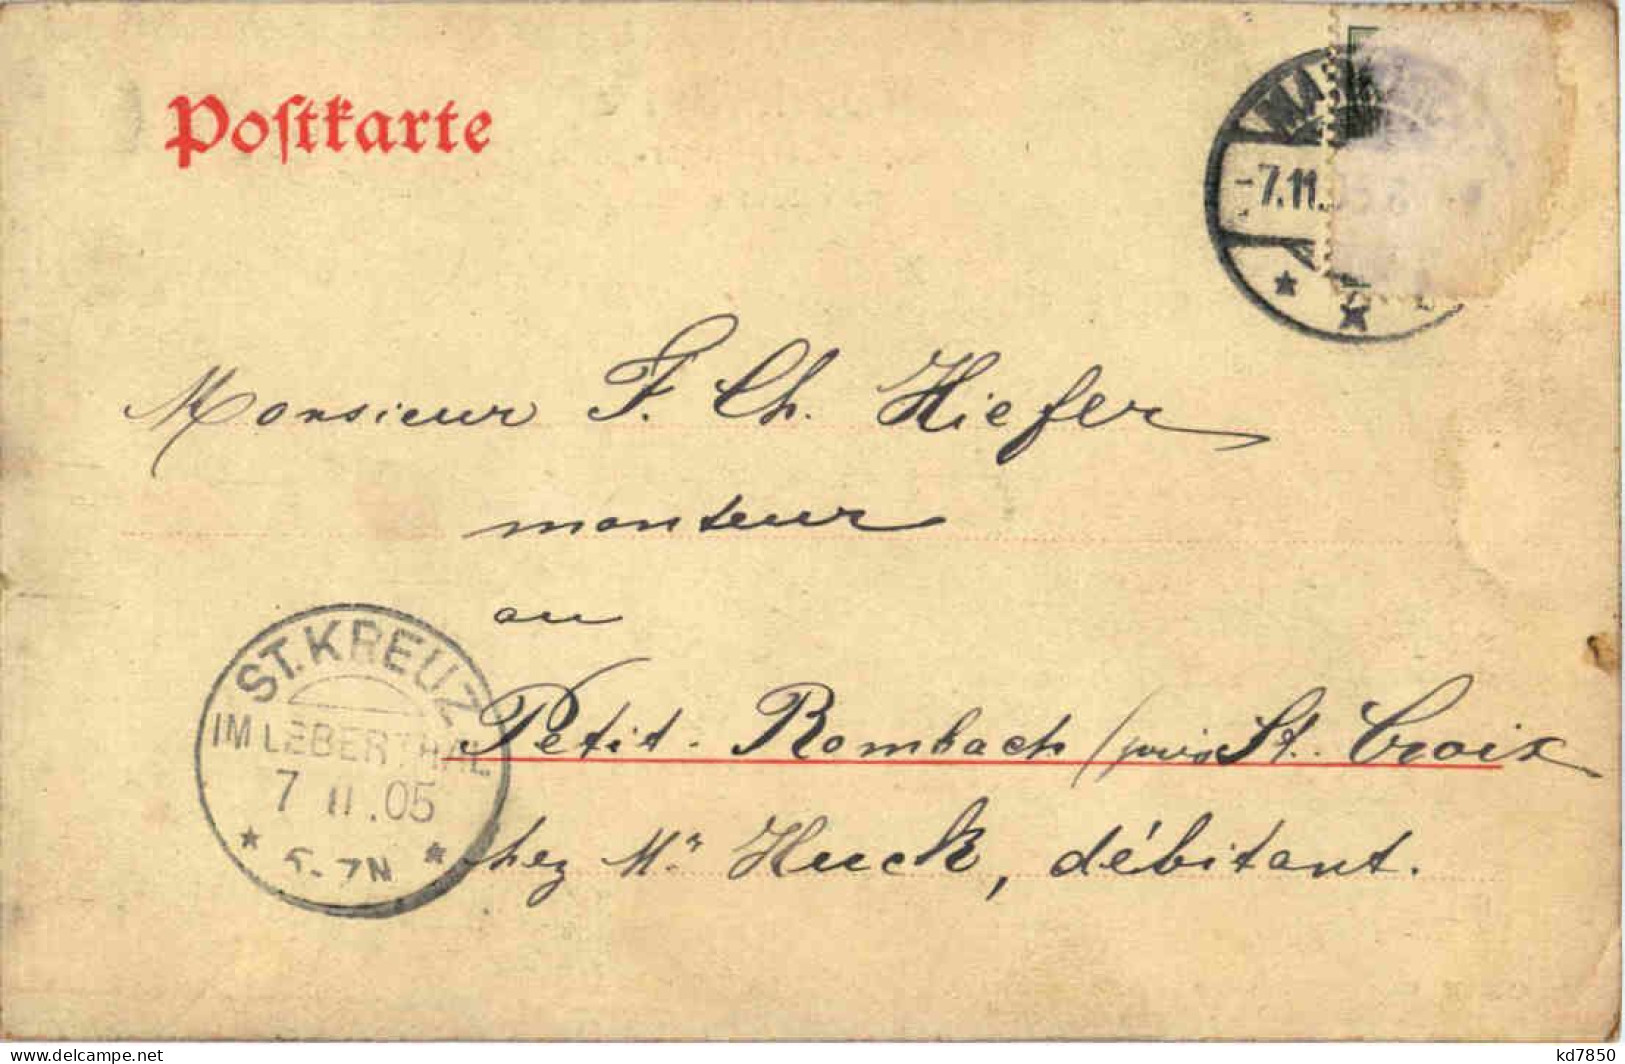 Postkarte
-7.11.
Monsieur F. Ch. Hiefer
monteur
au
Petit-Rombach (près St. Croix
chez Mr Huck, débitant.
ST. KREUZ
IM LEBERTHAL
7 11.05
5-7N
www.delcampe.net
kd7850